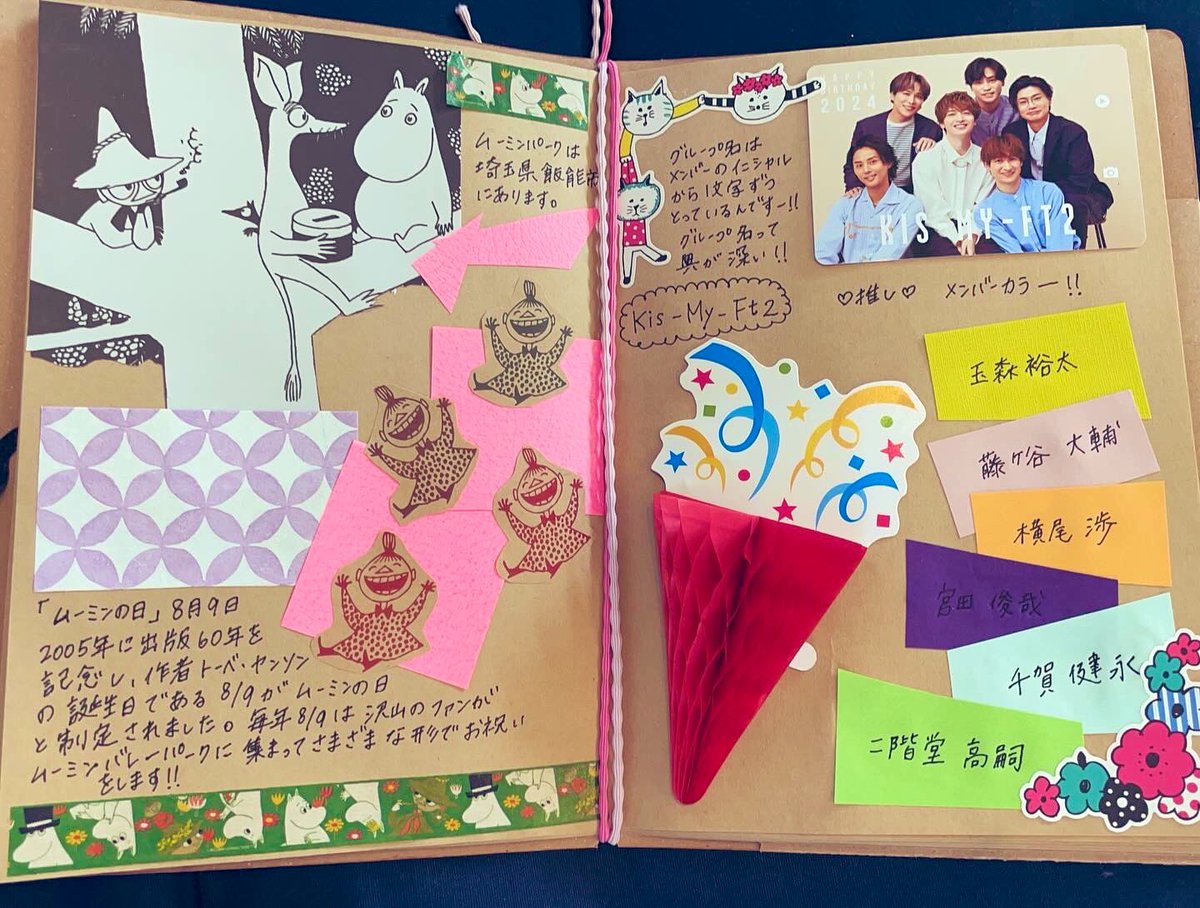 ムーミンパークは
埼玉県飯能市
にあります。
「ムーミンの日」8月9日
2005年に出版60年を
記念し、作者トーベ・ヤンソン
の誕生日である8/9がムーミンの日
と制定されました。毎年8/9は沢山のファンが
ムーミンバレーパークに集まってさまざまな形でお祝い
をします!!
グループ名は
メンバーのイニシャル
から1文字ずつ
とっているんですー!!
グループ名って
興が深い!!
Kis-My-Ft2
HAPPY
BIRTHDAY
2024
KIS-MY-FT2
♡推し♡ メンバーカラー!!
玉森裕太
藤ヶ谷 大輔
横尾 渉
宮田 俊哉
千賀 健永
二階堂 高嗣